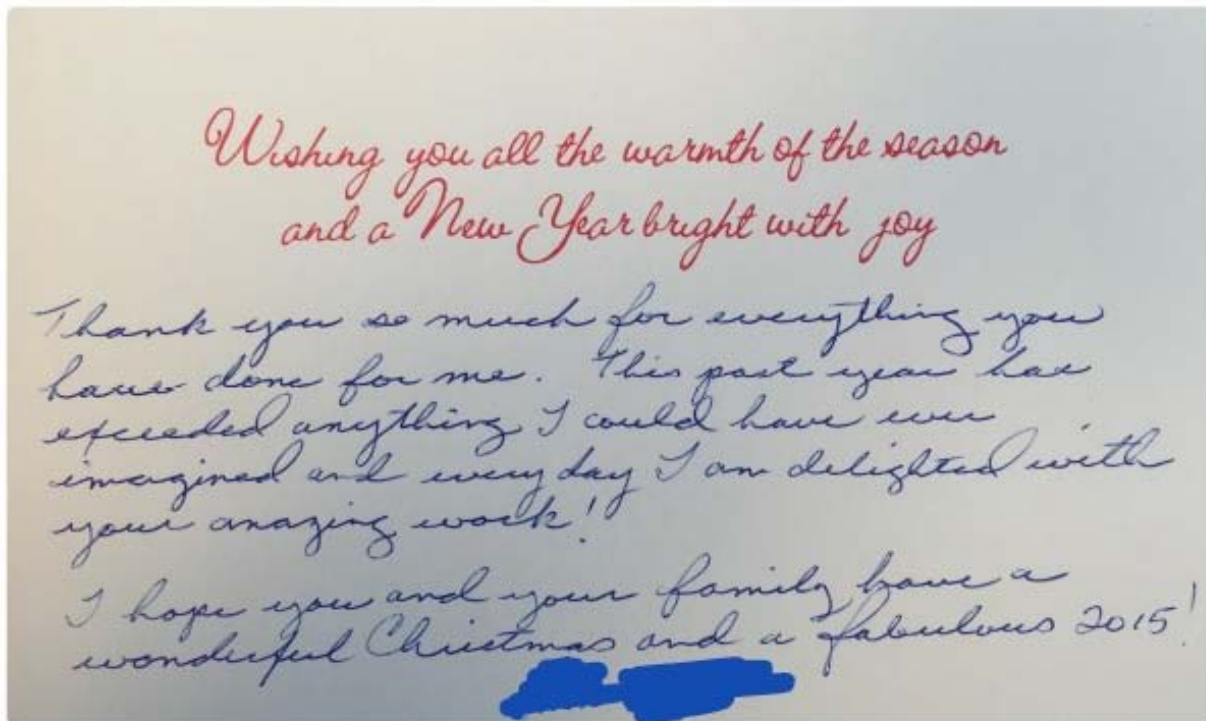 Wishing you all the warmth of the season
and a New Year bright with joy
Thank you so much for everything you
have done for me. This past year has
exceeded anything I could have ever
imagined and every day I am delighted with
your amazing work!
I hope you and your family have a
wonderful Christmas and a fabulous 2015!